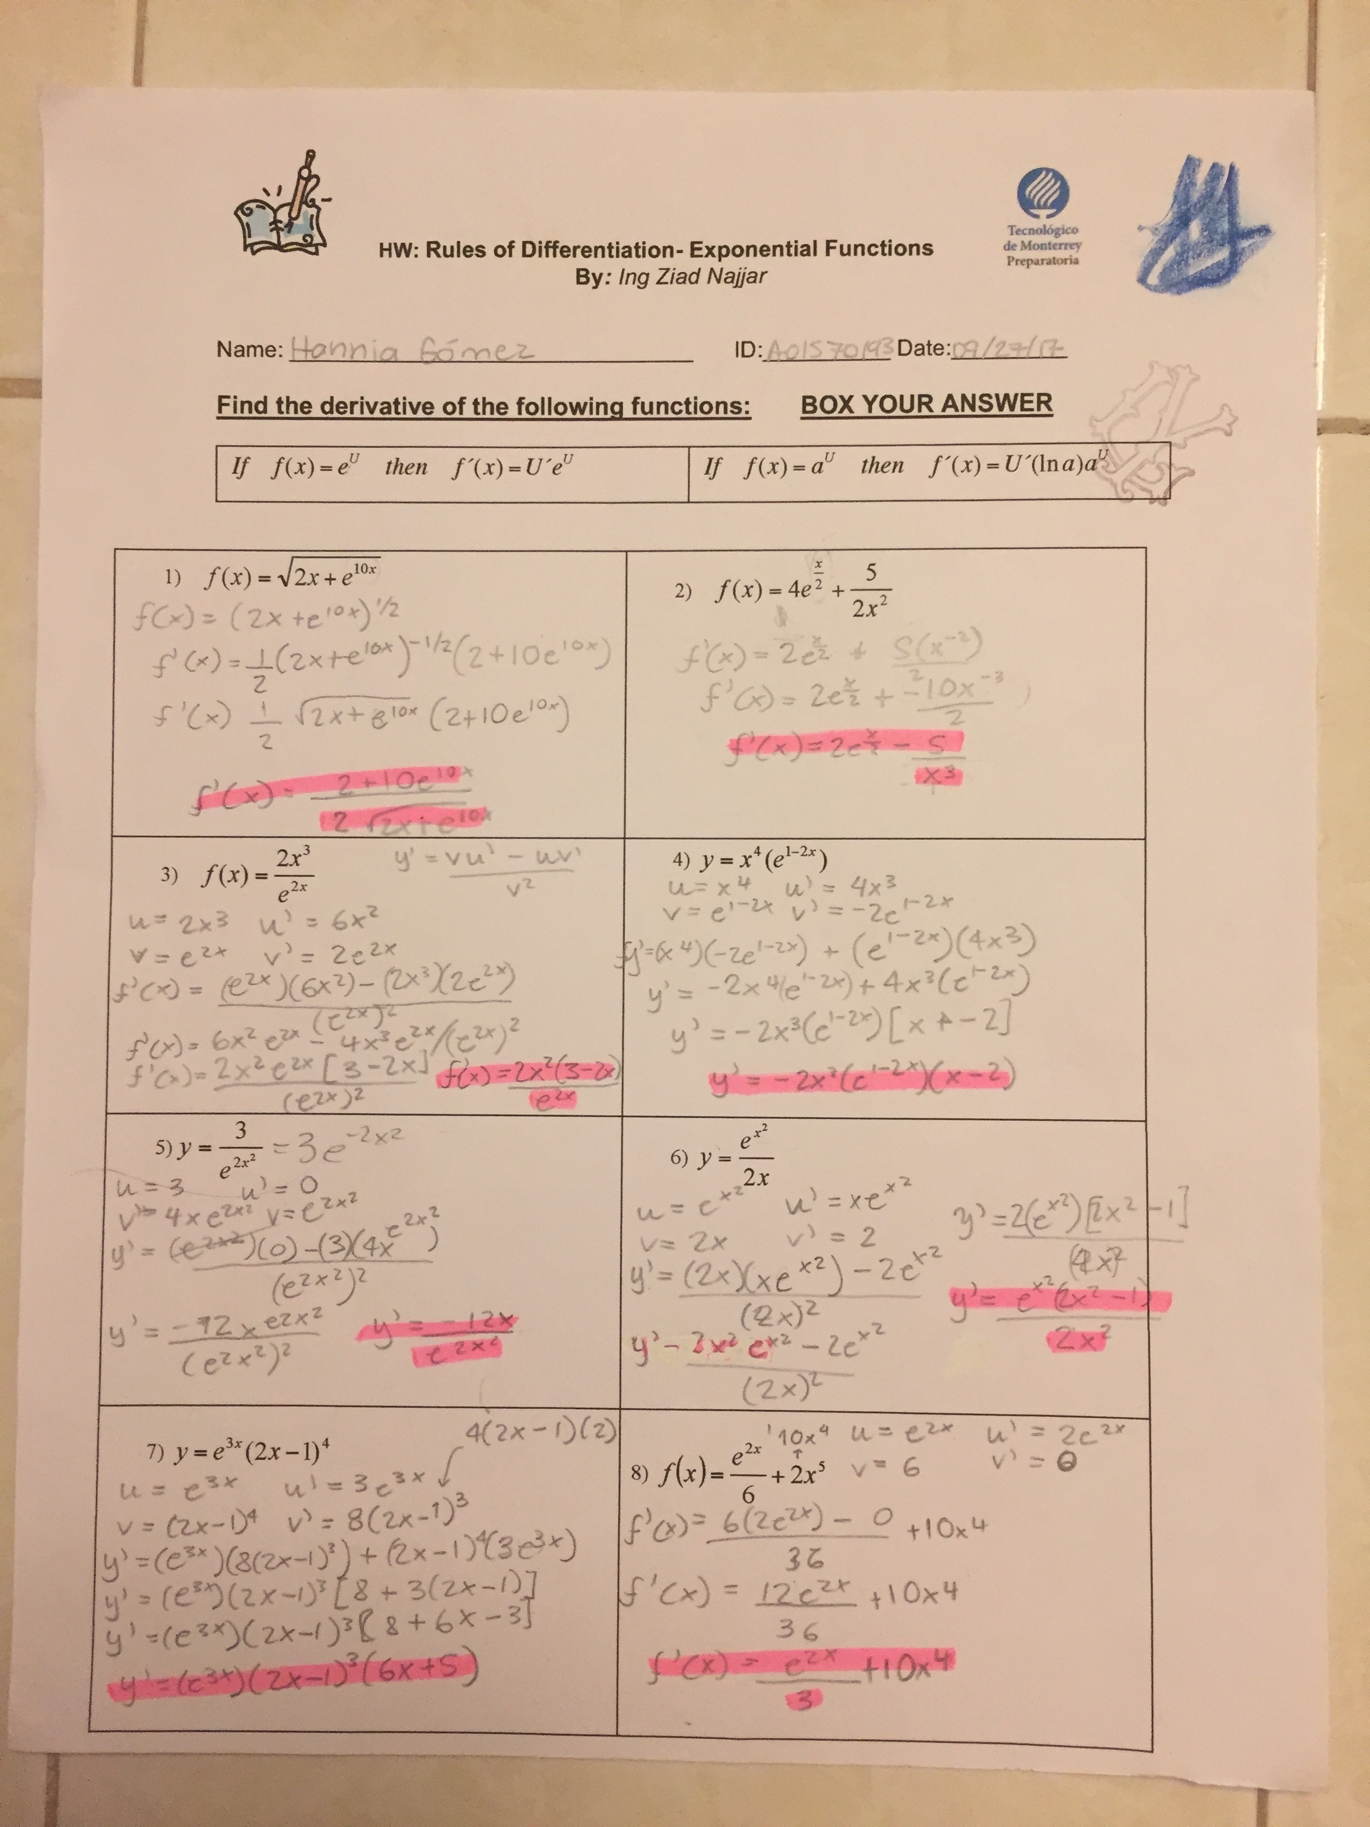 Tecnológico
de Monterrey
Preparatoria
HW: Rules of Differentiation- Exponential Functions
By: Ing Ziad Najjar
Name: Hannia Gómez ID: A01570193 Date: 09/27/17
Find the derivative of the following functions: BOX YOUR ANSWER
If f(x) = e^U then f´(x) = U´e^U If f(x) = a^U then f´(x) = U´(ln a)a^U
1) f(x) = √(2x + e^(10x))
f(x) = (2x + e^(10x))^(1/2)
f'(x) = 1/2 (2x + e^(10x))^(-1/2) (2 + 10e^(10x))
f'(x) 1/2 √(2x + e^(10x)) (2 + 10e^(10x))
f'(x) = (2 + 10e^(10x)) / (2√(2x + e^(10x)))
2) f(x) = 4e^(x/2) + 5/(2x^2)
f'(x) = 2e^(x/2) + 5(x^(-2))/2
f'(x) = 2e^(x/2) + -10x^(-3)/2
f'(x) = 2e^(x/2) - 5/x^3
3) f(x) = 2x^3/e^(2x) y' = (vu' - uv')/v^2
u = 2x^3 u' = 6x^2
v = e^(2x) v' = 2e^(2x)
f'(x) = ((e^(2x))(6x^2) - (2x^3)(2e^(2x)))/(e^(2x))^2
f'(x) = 6x^2 e^(2x) - 4x^3 e^(2x)/(e^(2x))^2
f'(x) = 2x^2 e^(2x)[3 - 2x]/(e^(2x))^2 f'(x) = 2x^2(3 - 2x)/e^(2x)
4) y = x^4(e^(1-2x))
u = x^4 u' = 4x^3
v = e^(1-2x) v' = -2e^(1-2x)
y' = (x^4)(-2e^(1-2x)) + (e^(1-2x))(4x^3)
y' = -2x^4(e^(1-2x)) + 4x^3(e^(1-2x))
y' = -2x^3(e^(1-2x))[x + -2]
y' = -2x^3(e^(1-2x))(x - 2)
5) y = 3/e^(2x^2) = 3e^(-2x^2)
u = 3 u' = 0
v' = 4xe^(2x^2) v = e^(2x^2)
y' = ((e^(2x^2))(0) - (3)(4x e^(2x^2)))/(e^(2x^2))^2
y' = -12xe^(2x^2)/(e^(2x^2))^2 y' = -12x/e^(2x^2)
6) y = e^(x^2)/2x
u = e^(x^2) u' = xe^(x^2)
v = 2x v' = 2
y' = ((2x)(xe^(x^2)) - 2e^(x^2))/(2x)^2
y' = (2x^2 e^(x^2) - 2e^(x^2))/(2x)^2
y' = 2(e^(x^2))[2x^2 - 1]/(4x)^2
y' = e^(x^2)(2x^2 - 1)/2x^2
7) y = e^(3x)(2x - 1)^4 4(2x - 1)(2)
u = e^(3x) u' = 3e^(3x)
v = (2x - 1)^4 v' = 8(2x - 1)^3
y' = (e^(3x))(8(2x - 1)^3) + (2x - 1)^4(3e^(3x))
y' = (e^(3x))(2x - 1)^3[8 + 3(2x - 1)]
y' = (e^(3x))(2x - 1)^3[8 + 6x - 3]
y' = (e^(3x))(2x - 1)^3(6x + 5)
8) f(x) = e^(2x)/6 + 2x^5 10x^4
u = e^(2x) u' = 2e^(2x)
v = 6 v' = 0
f'(x) = (6(2e^(2x)) - 0)/36 + 10x^4
f'(x) = 12e^(2x)/36 + 10x^4
f'(x) = e^(2x)/3 + 10x^4